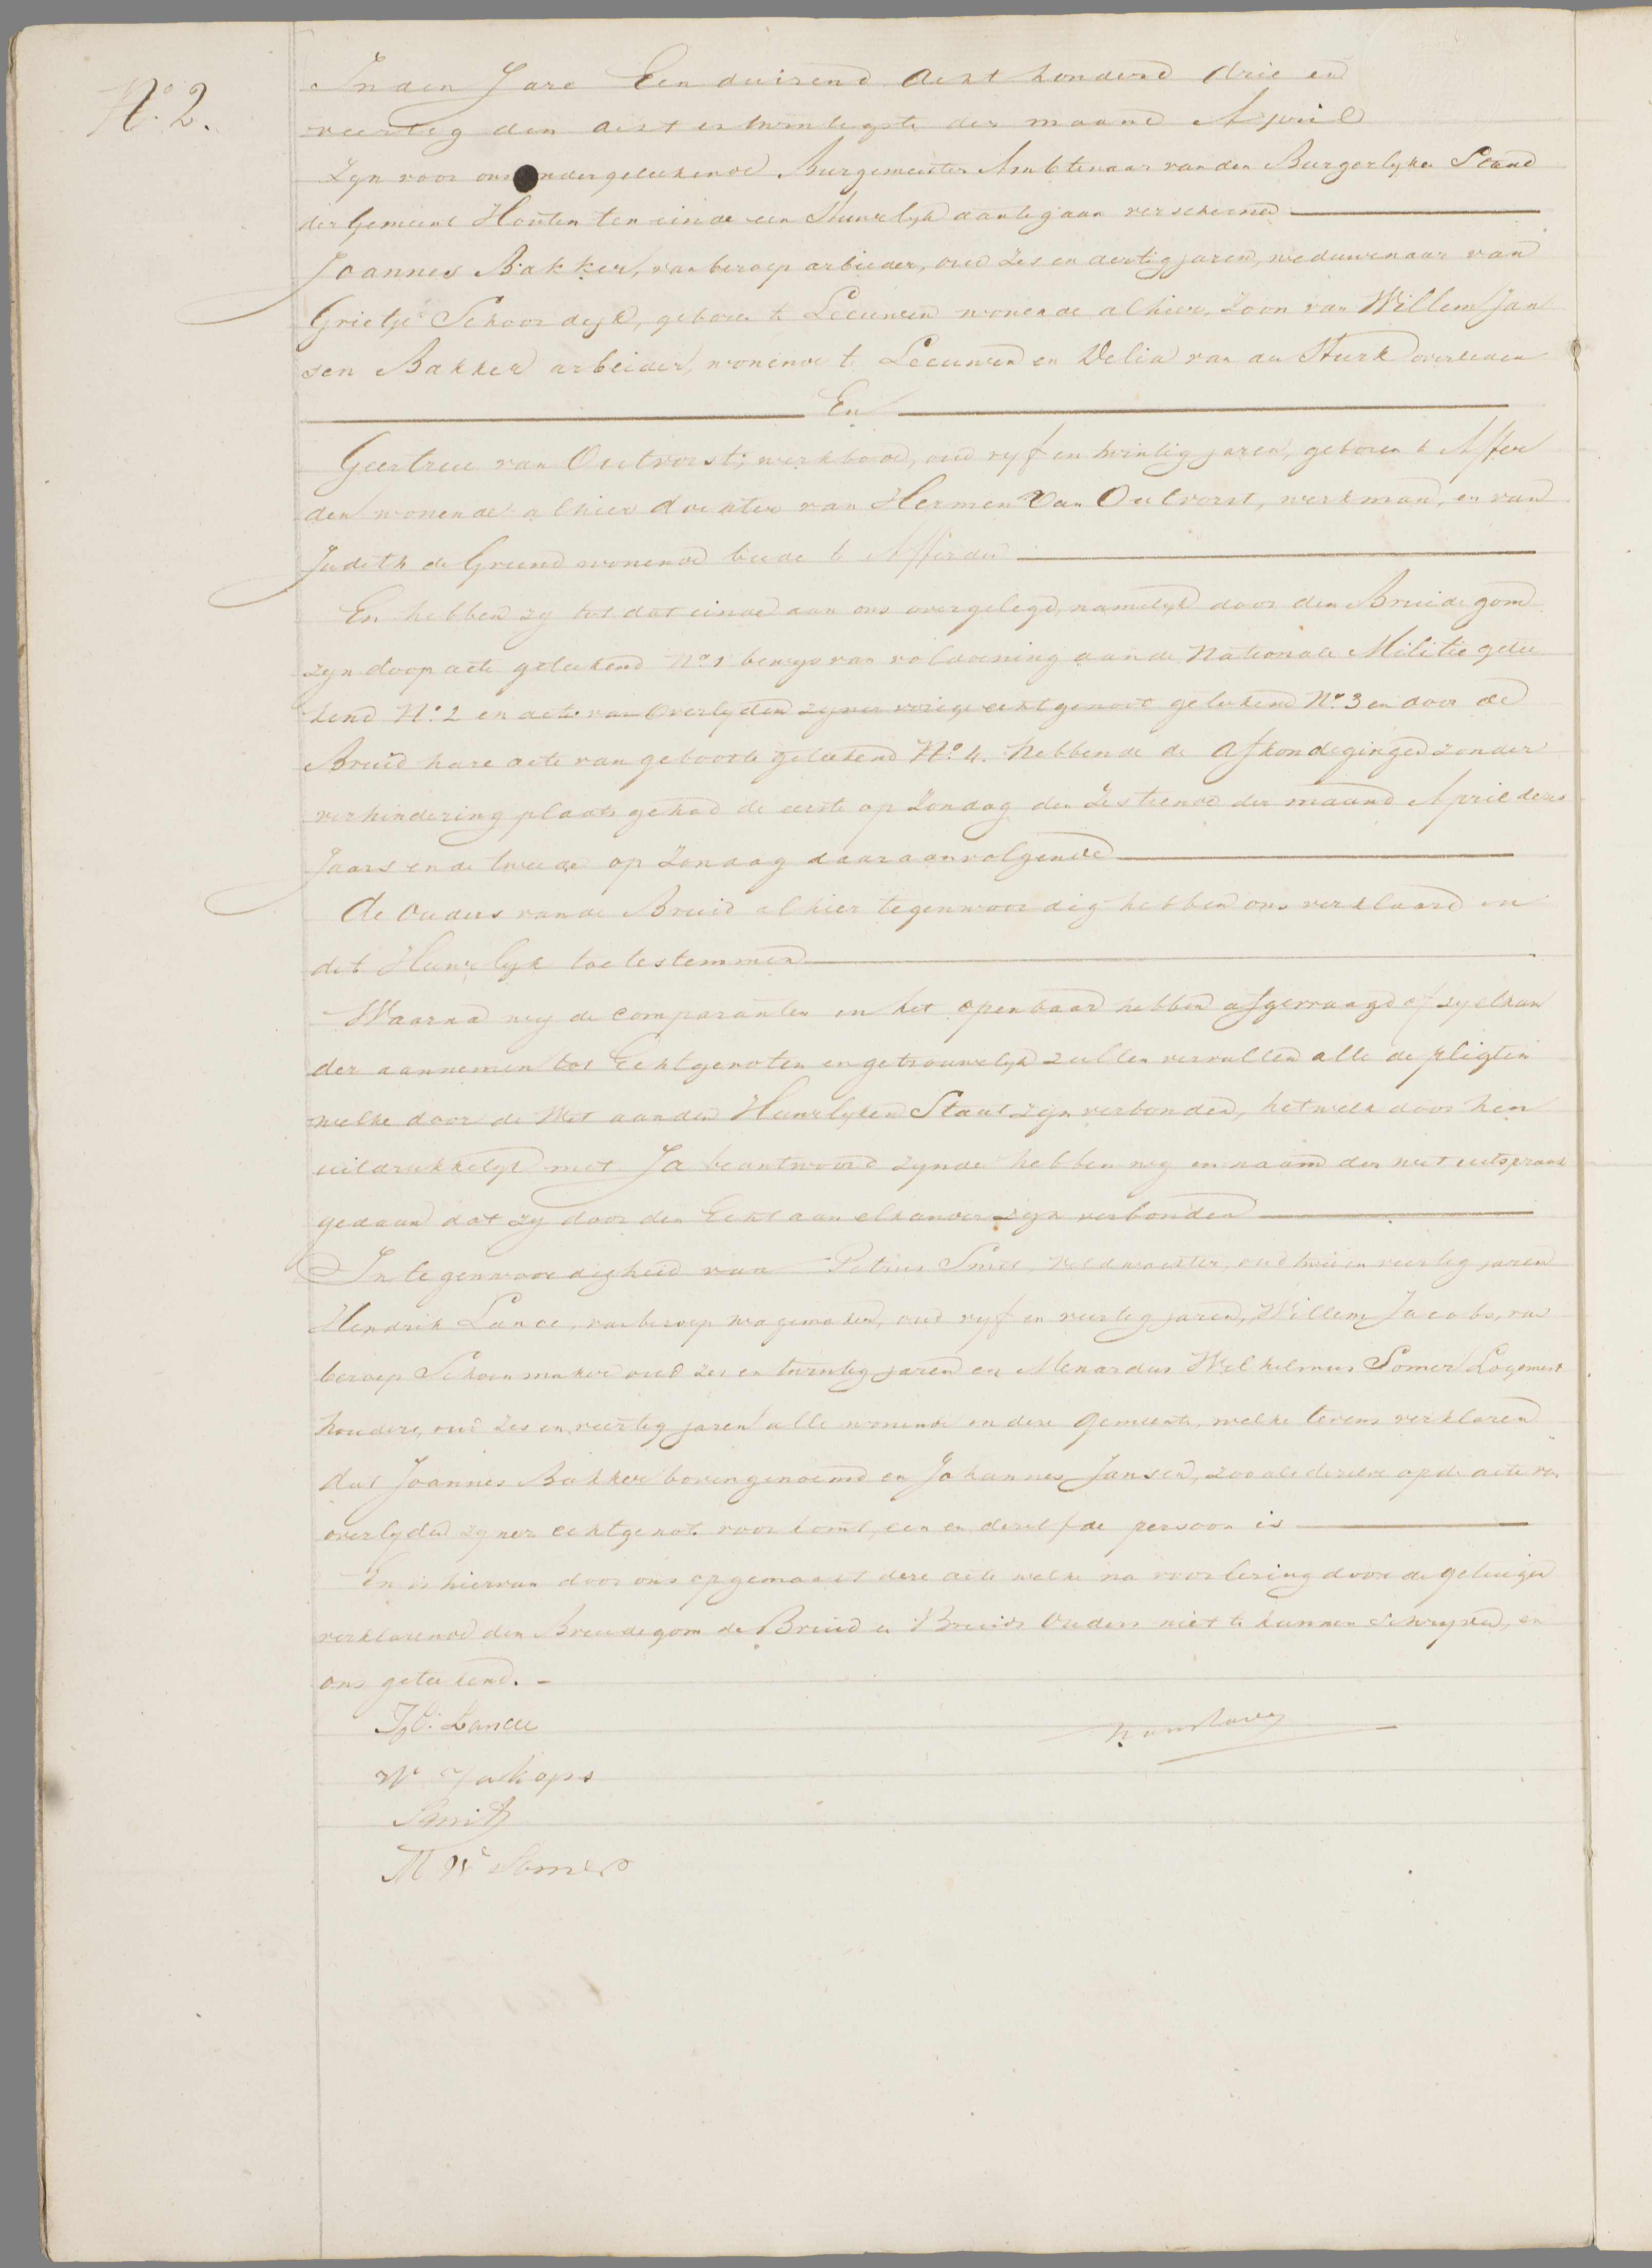 No. 2.
In den Jare Een duizend Acht honderd drie en
veertig den acht en twintigste der maand April
Zyn voor ons ondergeteekende Burgemeester Ambtenaar van den Burgerlyken Stand
der Gemeente Houten ten einde een Huwelyk aantegaan verschenen
Joannes Bakker, van beroep arbieder, oud Zes en dertig jaren, weduwenaar van
Grietje Schoordijk, geboren te Leeuwen wonende alhier, Zoon van Willem Jan
sen Bakker arbeider, wonende te Leeuwen en Delia van den Sturk overleden
En
Geertrui van Outvorst, werkbode, oud vyf en twintig jaren, geboren te Affer
den wonende alhier dochter van Hermen van Outvorst, werkman, en van
Judith de Grund wonende beide te Afferden
En hebben zy tot dat einde aan ons overgelegd, namelyk door den Bruidegom
zyn doop acte geteekend No 1 bewys van voldoening aan de Nationale Militie getee
kend No. 2 en acte van Overlyden zyner vorige echtgenoot geteekend No. 3 en door de
Bruid hare acte van geboorte geteekend No. 4. hebbende de Afkondegingen zonder
verhindering plaats gehad de eerste op Zondag den Zestiende der maand April dezes
Jaars en de tweede op Zondag daaraanvolgende
De Ouders van de Bruid alhier tegenwoordig hebben ons verklaard in
dit Huwelyk toetestemmen
Waarna wy de comparanten in het openbaar hebben afgevraagd of zy elkan
der aannemen tot Echtgenoten en getrouwelyk zullen vervullen alle de pligten
welke door de Wet aan den Huwelyken Staat zyn verbonden, hetwelk door hen
uitdrukkelyk met Ja beantwoord zynde hebben wy in naam der wet uitspraak
gedaan dat zy door den Echt aan elkander zyn verbonden
In tegenwoordigheid van Petrus Smit, veldwachter, oud twee en veertig jaren
Hendrik Lance, van beroep wagemaker, oud vyf en veertig jaren, Willem Jacobs, van
beroep Schoenmaker oud zes en twintig jaren en Menardus Wilhelmus Somer Logement
houder, oud Zes en veertig jaren alle wonende in deze Gemeente, welke tevens verklaren
dat Joannes Bakker bovengenoemd en Johannes Jansen, zoo als dezelve op de acte van
overlyden zyner echtgenote voorkomt, een en dezelfde persoon is
En is hiervan door ons opgemaakt deze acte welke na voorlezing door de getuigen
verklarende den Bruidegom de Bruid en Bruids Ouders niet te kunnen schryven, en
ons geteekend. -
H. Lance
W Jakops
Smit
M W Somer